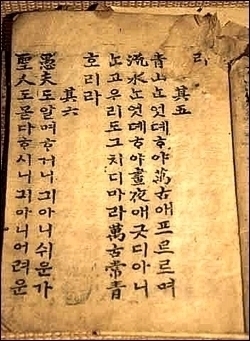 라
其五
靑山ᄂᆞᆫ엇뎨ᄒᆞ야萬古애프르르며
流水ᄂᆞᆫ엇뎨ᄒᆞ야晝夜애긋디아니
ᄂᆞᆫ고우리도그치디마라萬古常靑
호리라
其六
愚夫도알며ᄒᆞ거니긔아니쉬운가
聖人도몯다ᄒᆞ시니긔아니어려운